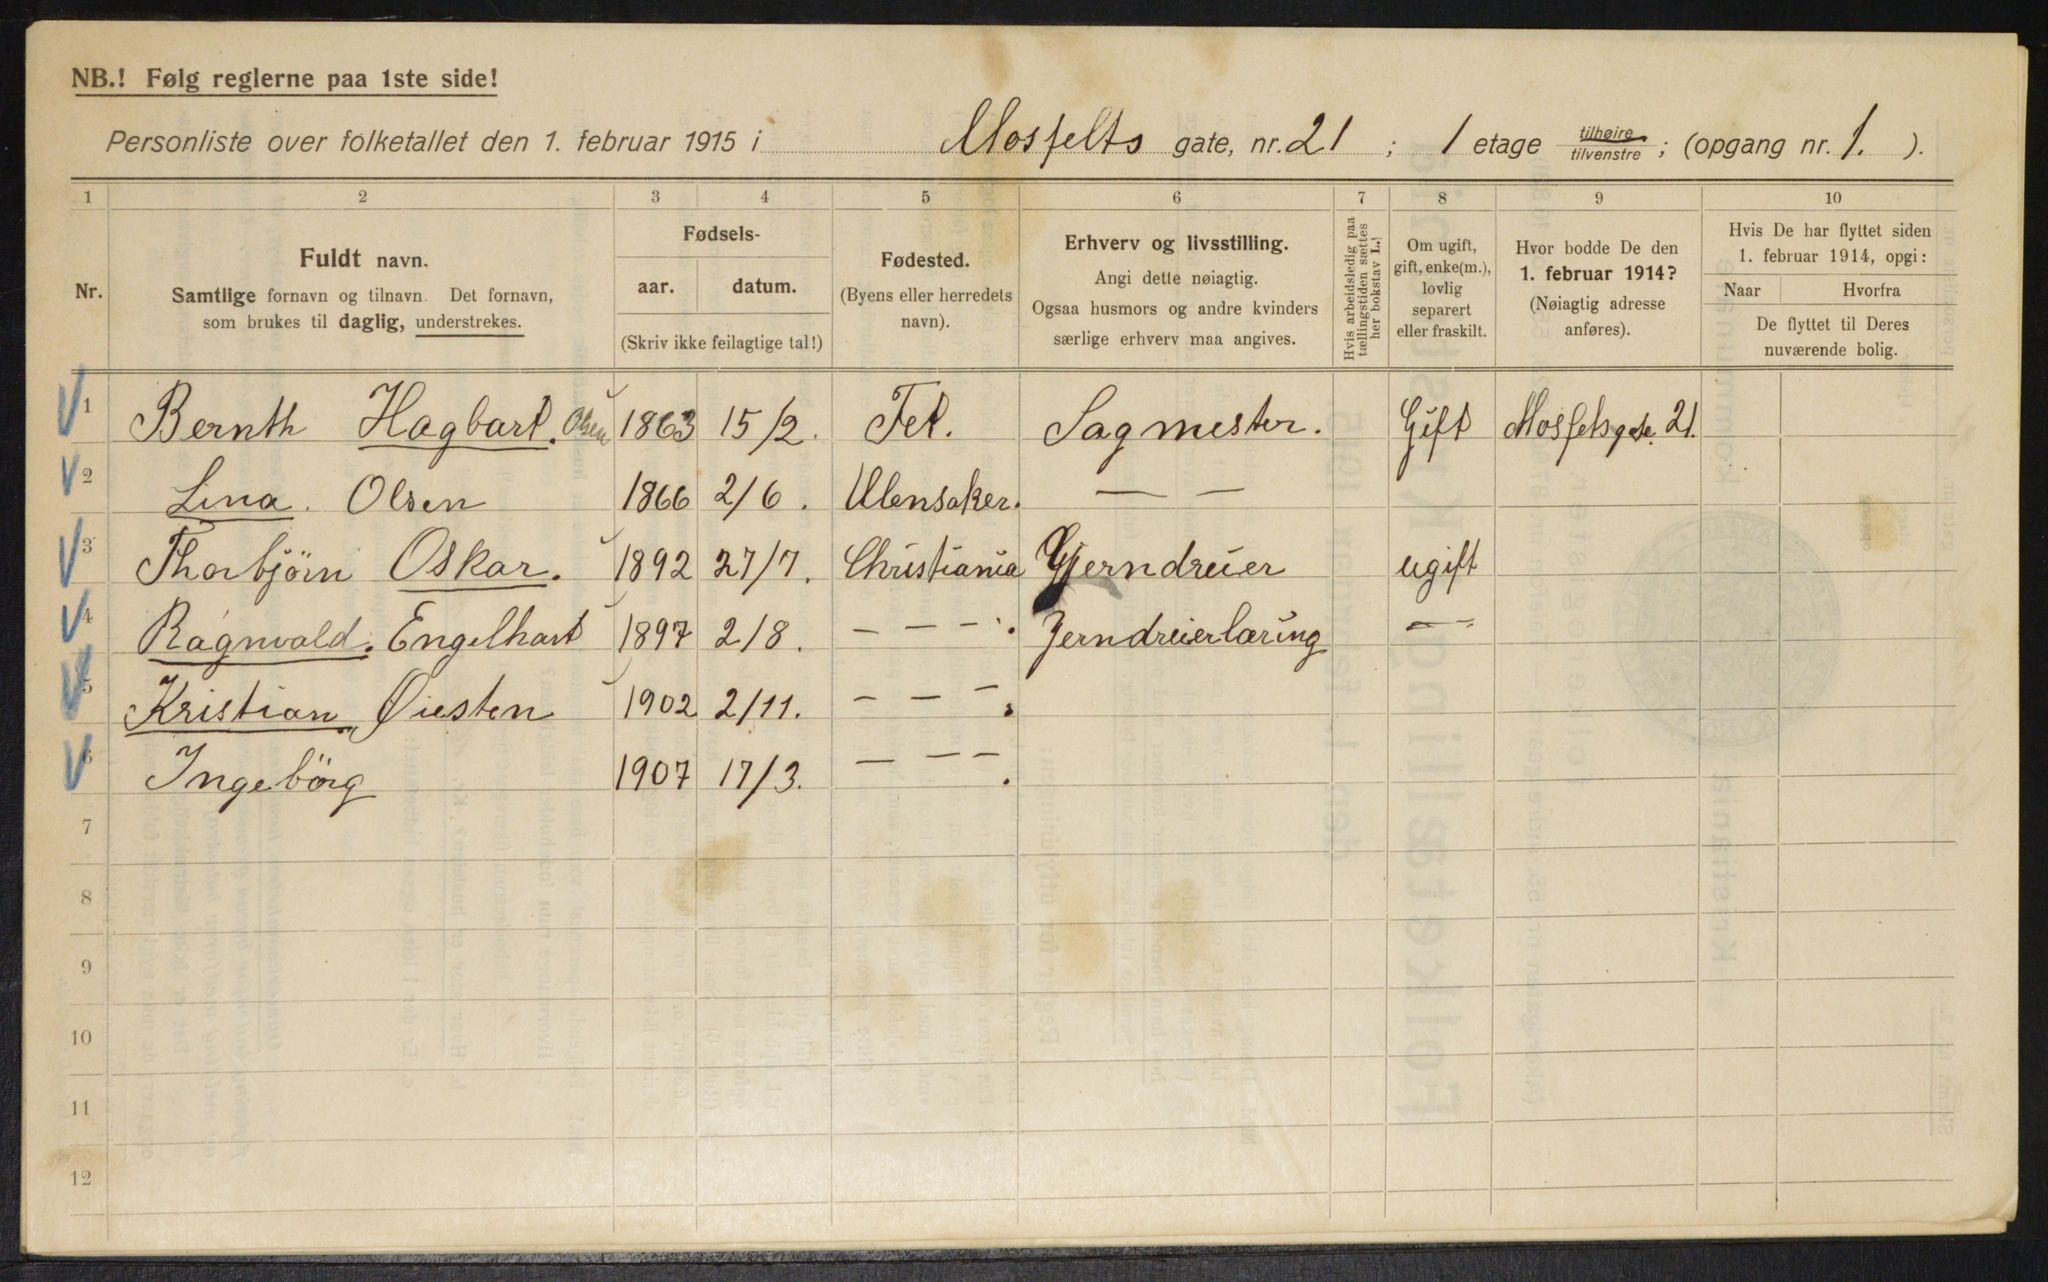 NB.! Følg reglerne paa 1ste side!
Personliste over folketallet den 1. februar 1915 i Mosfelts gate, nr. 21 ; 1 etage tilhøire/tilvenstre ; (opgang nr. 1. ).
1 2 3 4 5 6 7 8 9 10
Nr.
Fuldt navn.
Samtlige fornavn og tilnavn. Det fornavn,
som brukes til daglig, understrekes.
Fødsels-
aar. datum.
(Skriv ikke feilagtige tal!)
Fødested.
(Byens eller herredets
navn).
Erhverv og livsstilling.
Angi dette nøiagtig.
Ogsaa husmors og andre kvinders
særlige erhverv maa angives.
Hvis arbeidsledig paa
tællingstiden sættes
her bokstav L.!
Om ugift,
gift, enke(m.),
lovlig
separert
eller fraskilt.
Hvor bodde De den
1. februar 1914?
(Nøiagtig adresse
anføres).
Hvis De har flyttet siden
1. februar 1914, opgi:
Naar Hvorfra
De flyttet til Deres
nuværende bolig.
1 Bernth Hagbart. Olsen 1863 15/2. Fet. Sagmester. Gift Mosfetsgte. 21.
2 Lina. Olsen 1866 2/6. Ulensaker. — —
3 Thorbjörn Oskar. 1892 27/7. Christiania Gjerndreier ugift
4 Ragnvald. Engelhart 1897 2/8. — — — Jerndreierlæring —
5 Kristian Øiesten 1902 2/11. — — —
6 Ingebörg 1907 17/3. — — —
7
8
9
10
11
12